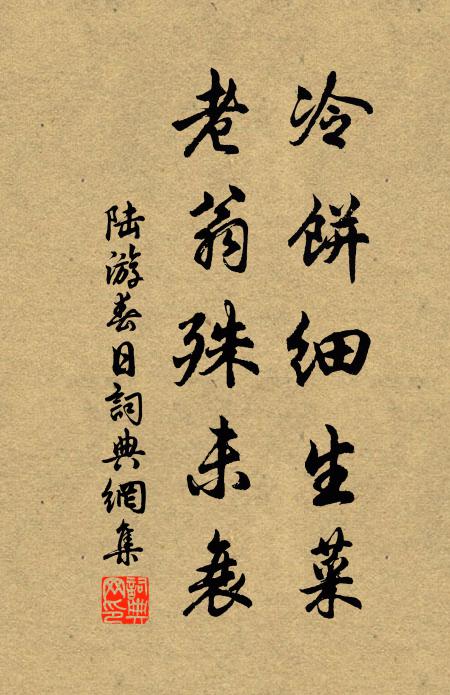 冷餅細生菜
老翁殊未衰
陆游春日詞典網集
詞典網印